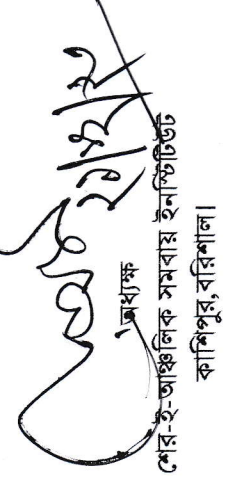 অধ্যক্ষ
শের-ই-আঞ্চলিক সমবায় ইনস্টিটিউট
কাশিপুর, বরিশাল।